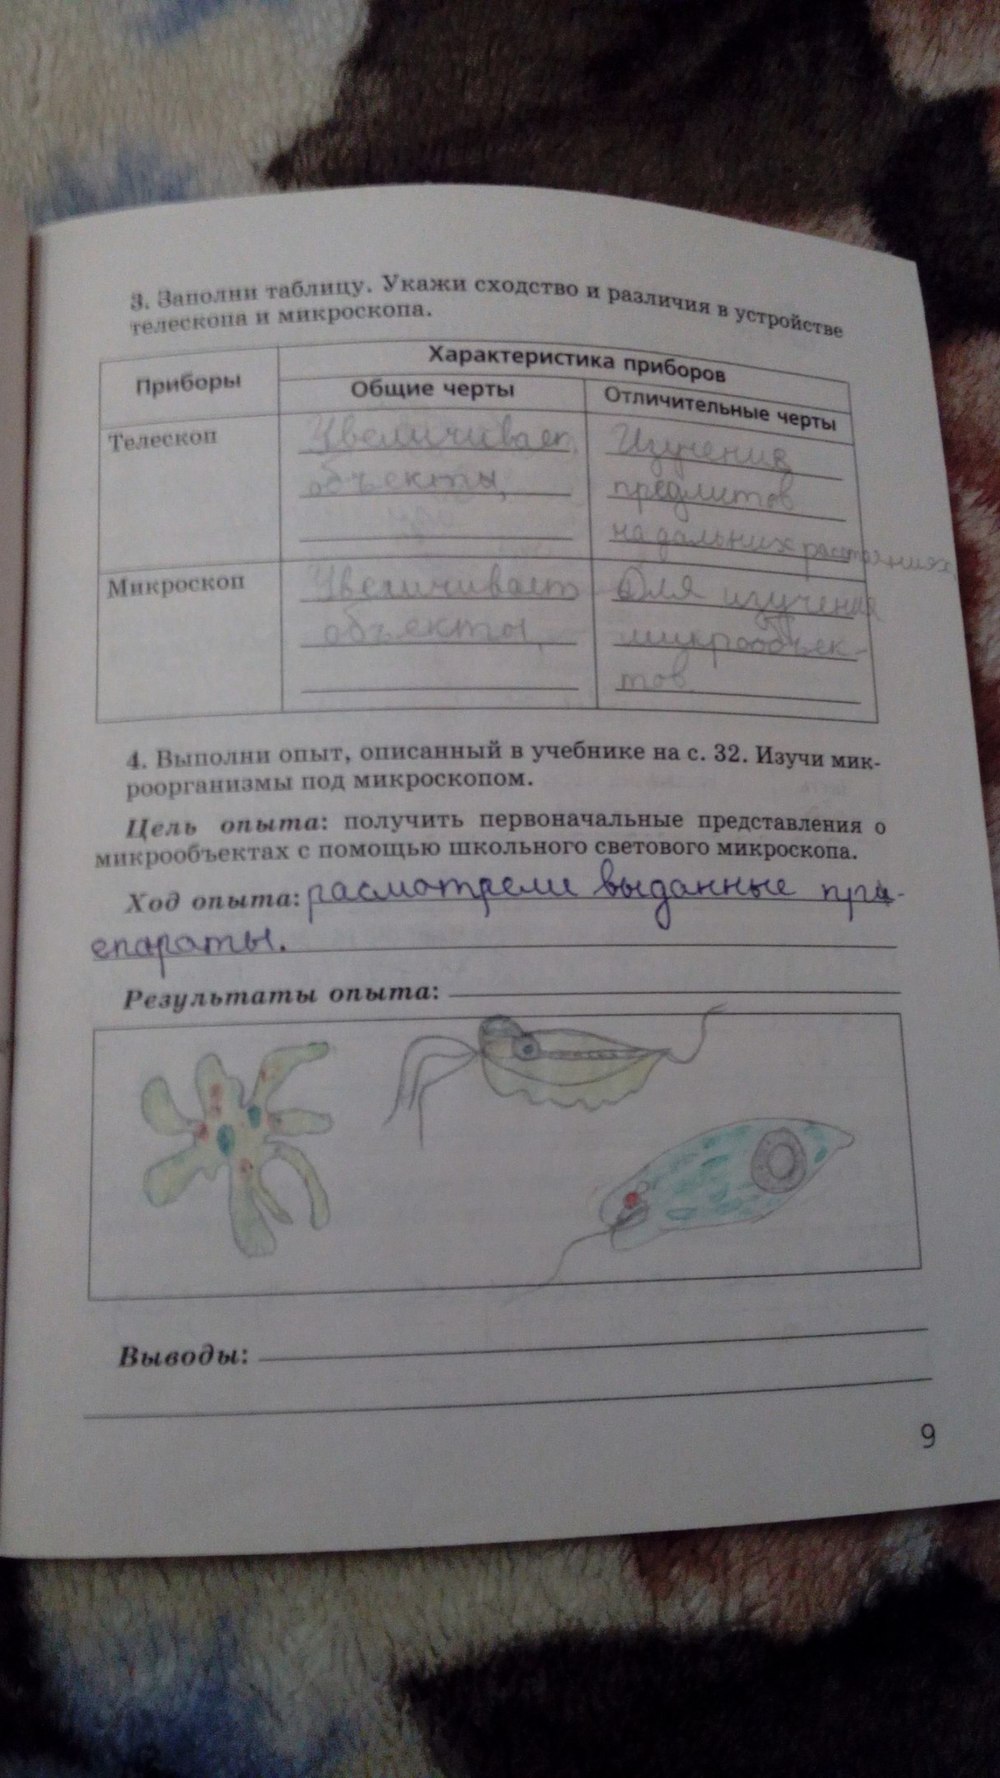 3. Заполни таблицу. Укажи сходство и различия в устройстве
телескопа и микроскопа.
Приборы
Характеристика приборов
Общие черты
Отличительные черты
Телескоп
Увеличивает
объекты,
Изучения
предмитов
на дальних растояниях
Микроскоп
Увеличивает
объекты,
Для изучения
микрообъек-
тов
4. Выполни опыт, описанный в учебнике на с. 32. Изучи мик-
роорганизмы под микроскопом.
Цель опыта: получить первоначальные представления о
микрообъектах с помощью школьного светового микроскопа.
Ход опыта: расмотрели выданные пре-
епараты.
Результаты опыта:
Выводы:
9